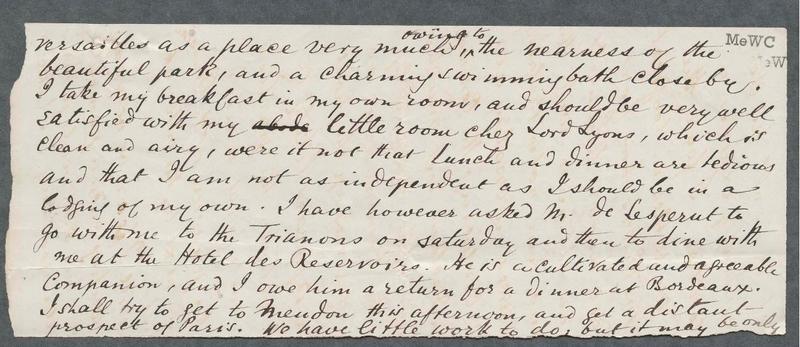 owing to
versailles as a place very much, ^ the nearness of the
beautiful park, and a charming swimming bath close by.
I take my breakfast in my own room, and should be very well
satisfied with my abode little room chez Lord Lyons, which is
clean and airy, were it not that lunch and dinner are tedious
and that I am not as independent as I should be in a
lodging of my own. I have however asked M. de Lesperut to
go with me to the Trianons on saturday and then to dine with
me at the Hotel des Reservoirs. He is a cultivated and agreeable
Companion, and I owe him a return for a dinner at Bordeaux.
I shall try to get to Meudon this afternoon, and get a distant
prospect of Paris. We have little work to do, but it may be only
MeWC
eW